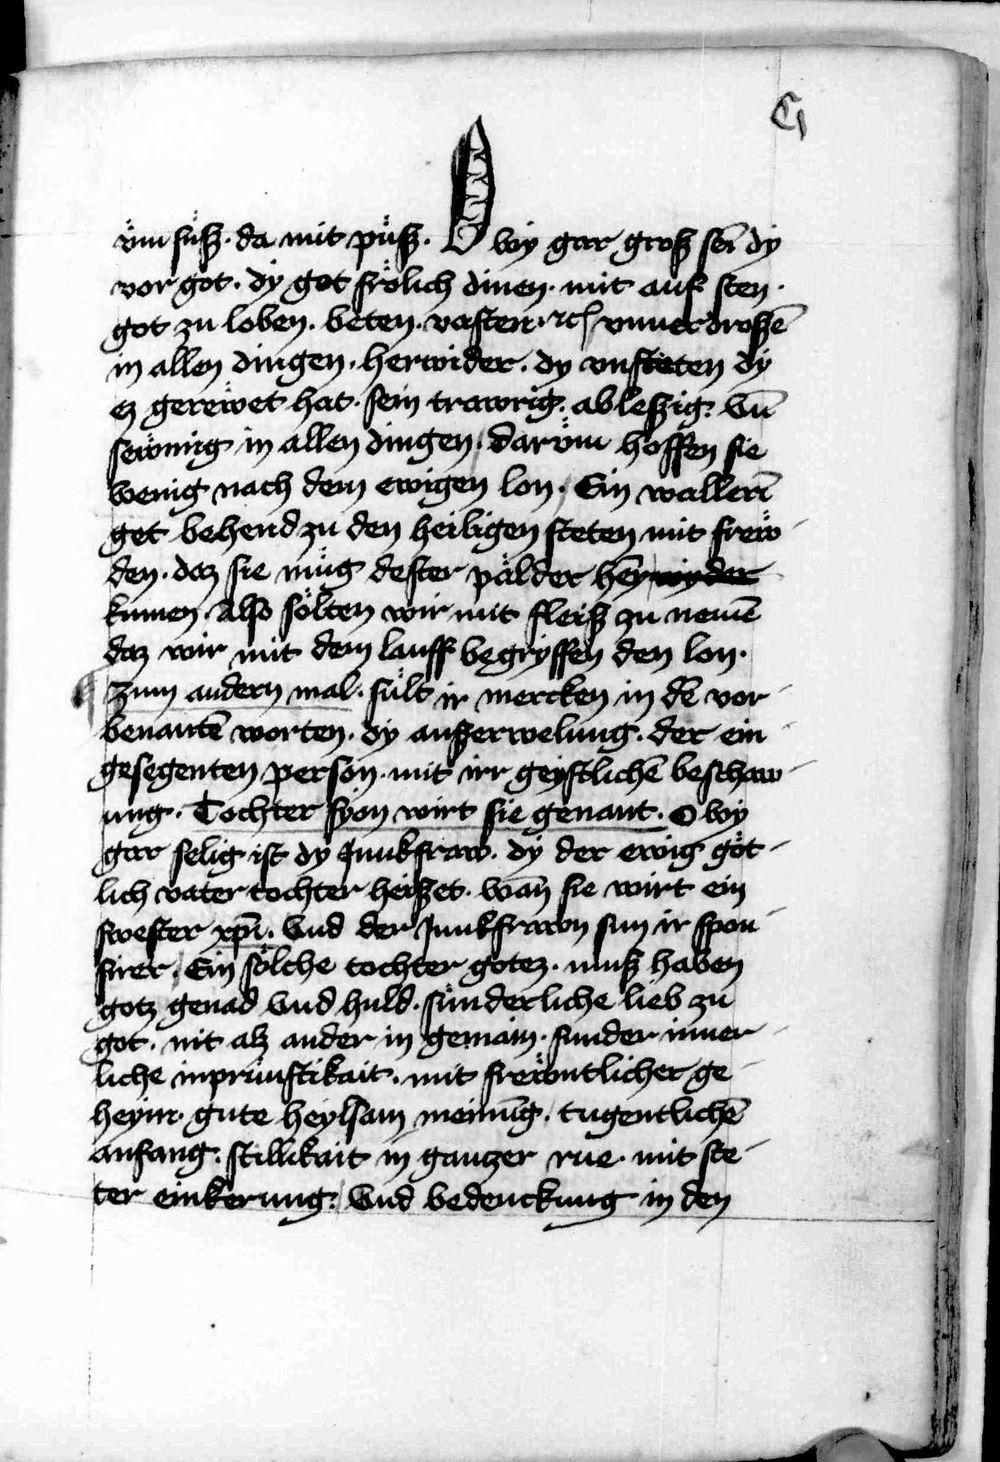 vm̈ süß · da mit puß · O wy gar groß sein dy
vor got · dy got frölich dinen · mit auf sten ·
got zu loben · beten · vasten · ꝛc̃ vnuerdroßē
in allen dingen · herwider · dy vnsteten dy
ez gerewet hat · sein trawrig · ableßig · vn̄
sewmig in allen dingen · darvm̈ hoffen sie
wenig nach dem ewigen lon · Ein wallerī
get behend zu den heiligen steten mit frew-
den · daz sie müg dester pälder heī wyder
kumen · Also sölten wir mit fleiß zu nemē
daz wir mit dem lauff begryffen den lon ·
Zum andern mal · sült ir mercken in dē vor-
benantē worten · dy außerwelung · der ein-
gesegenten person · mit irr geystlichē beschaw-
ung · Tochter syon wirt sie genant · O wy
gar selig ist dy Junkfraw · dy der ewig göt-
lich vater tochter heißet · wan̄ sie wirt ein
swester xp̄i · Vnd der Junkfrawn sun ir spon-
sirer · Ein sölche tochter gotez · muß haben
gotz genad vnd huld · sünderliche lieb zu
got · nit alz ander in gemain · sunder inner-
liche inprünstikait · mit frewntlicher ge-
heym · gute heylsam meinūg · tugentlichē
anfang · stillikait in gantzer rue · mit ste-
ter einkerung · Vnd bedenckung in den